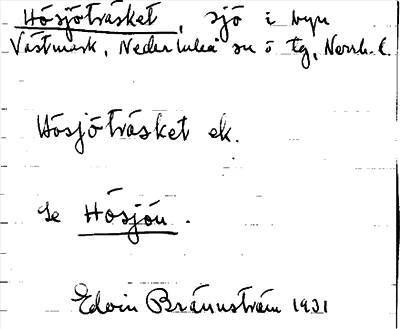 Hösjöträsket, sjö i byn
Västmark, Nederluleå sn o tg, Norrb. l.
Hösjöträsket ek.
Se Hösjön.
Edvin Brännström 1931